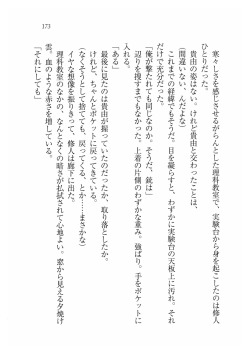 173
寒々しさを感じさせるがらんとした理科教室で、実験台から身を起こしたのは修人
ひとりだった。
貴由の姿はない。けれど貴由と交わったことは、
「間違いないんだよな」
これまでの経緯でもそうだ。目を凝らすと、わずかに実験台の天板上に汚れ。それ
だけで充分だった。
「俺が撃たれても同じなのか。そうだ、銃は」
辺りを捜すまでもなかった。上着の片側のわずかな重み、強ばり。手をポケットに
入れる。
「ある」
最後に見たのは貴由が握っていたのだったか、取り落としたか。
けれど、ちゃんとポケットに戻ってきている。
（なくそうとして捨てても、戻ってくる、とか……まさかな）
イヤな想像を振りきって、修人は廊下に出た。
理科教室のなかの、なんとなくの暗さが払拭されて心地よい。窓から見える夕焼け
雲。血のような赤さを増している。
「それにしても」